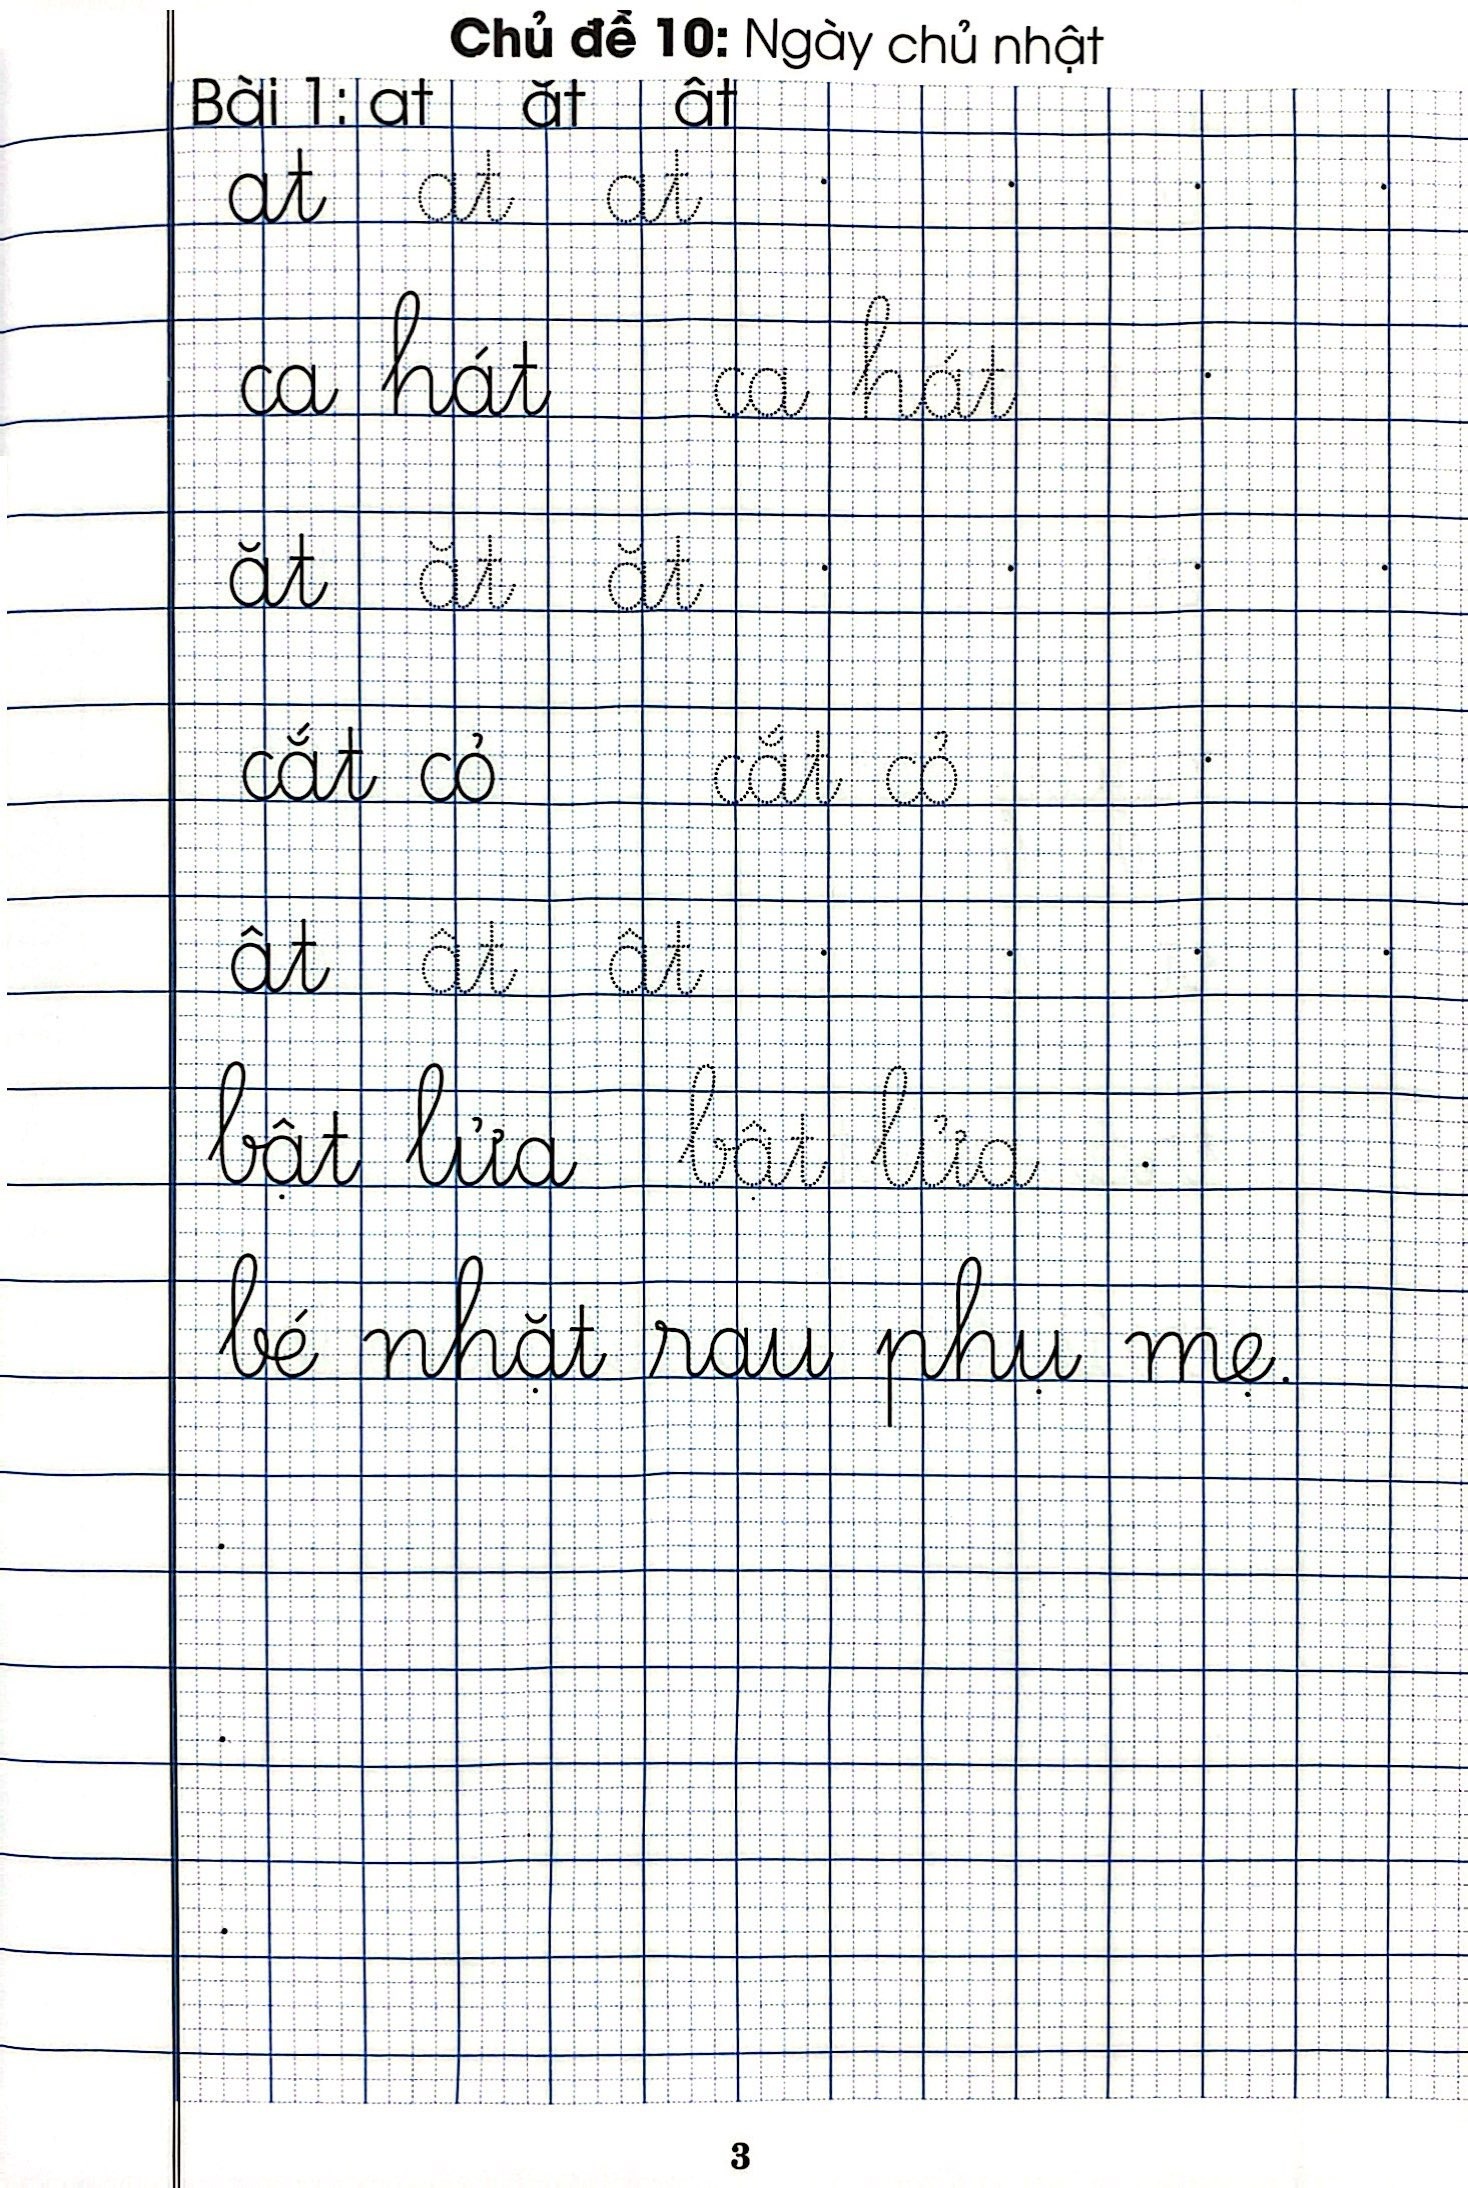 Chủ đề 10: Ngày chủ nhật
Bài 1: at ăt ât
at at at
ca hát ca hát
ăt ăt ăt
cắt cỏ cắt cỏ
ât ât ât
bật lửa bật lửa
bé nhặt rau phụ mẹ.
3